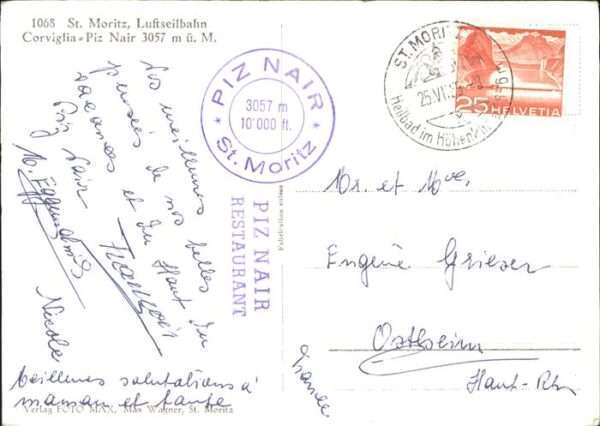 1068 St. Moritz, Luftseilbahn
Corviglia-Piz Nair 3057 m ü. M.
PIZ NAIR
3057 m
10'000 ft.
St. Moritz
ST. MORITZ
25.VI.
Heilbad im Hochen
25 HELVETIA
Nos meilleures
pensées de nos belles
vacances et du Haut du
Piz Nair
François
Nicole
Meilleures salutations à
maman et tante
PIZ NAIR
RESTAURANT
Mr. et Mme.
Eugène Grieser
Ostheim
Haut-Rhin
France
Verlag FOTO MAX, Max Wagner, St. Moritz